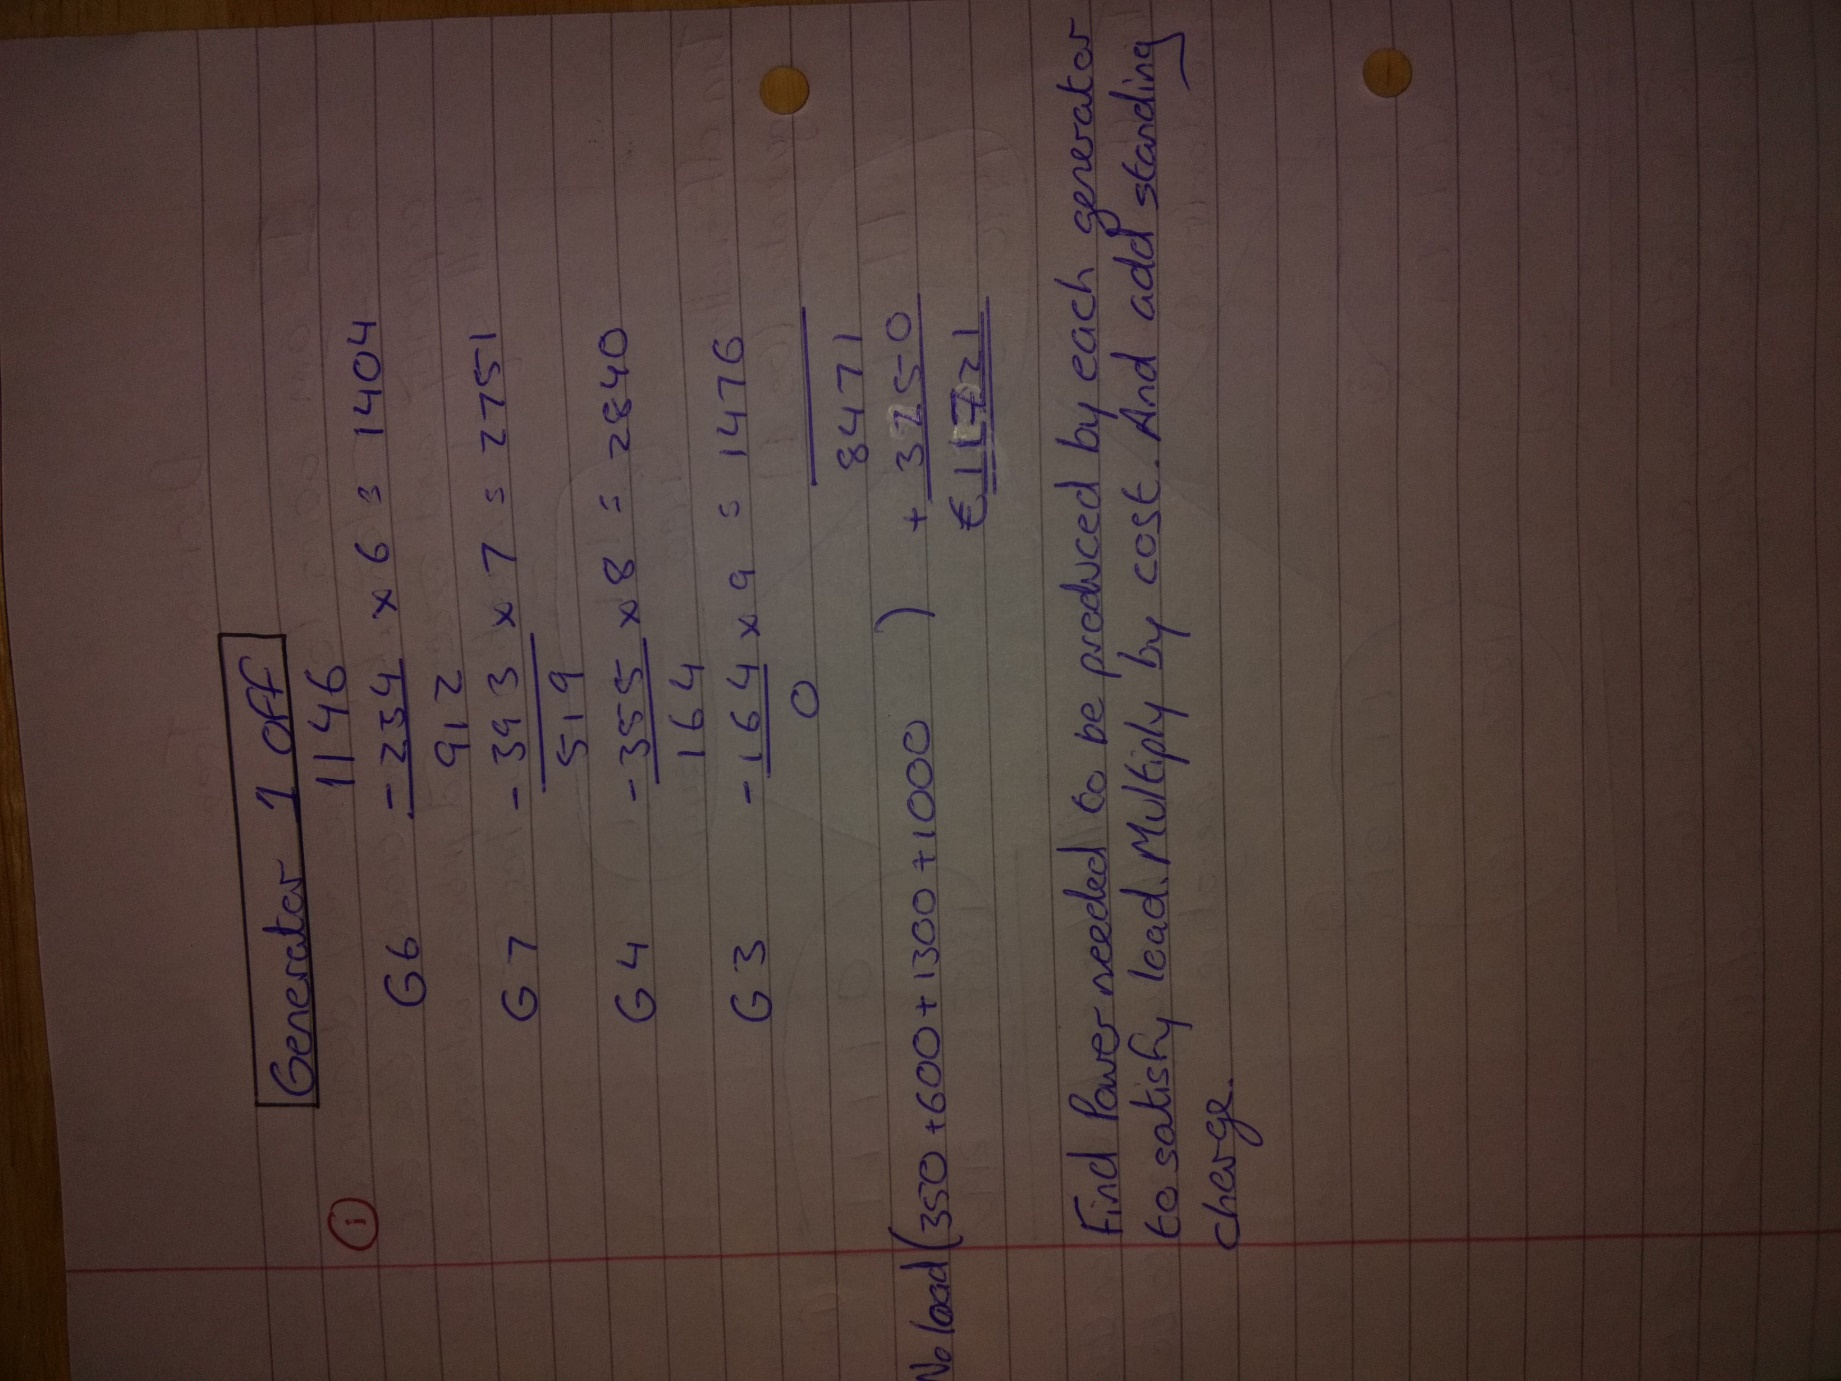 Generator 1 off
(i) 1146
G6 - 234 x 6 = 1404
912
G7 - 393 x 7 = 2751
519
G4 - 355 x 8 = 2840
164
G3 - 164 x 9 = 1476
0
8471
No load (350 + 600 + 1300 + 1000 ) + 3250
€ 11721
Find Power needed to be produced by each generator
to satisfy load. Multiply by cost. And add standing
charge.